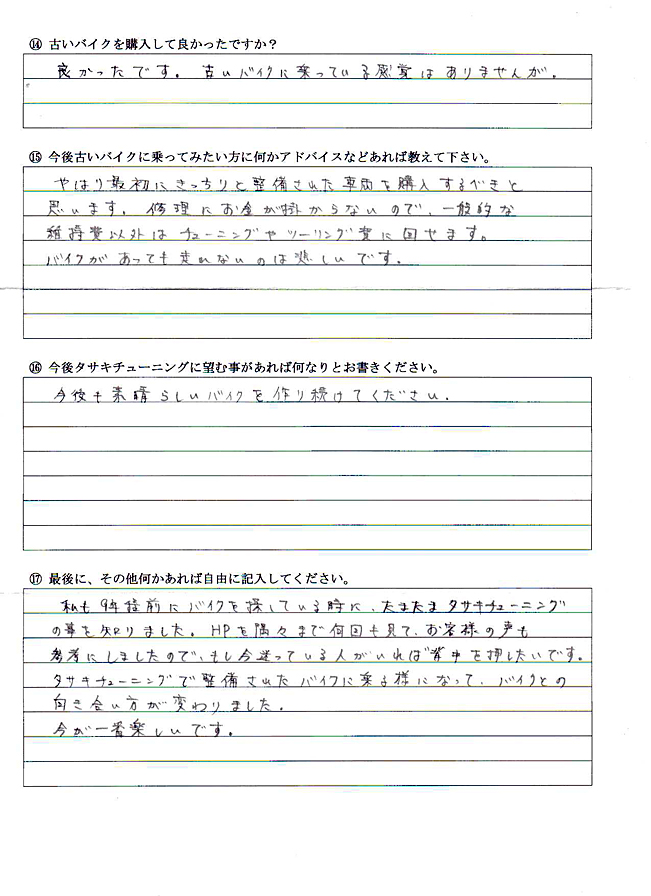 ⑭ 古いバイクを購入して良かったですか？
良かったです。古いバイクに乗っている感覚はありませんが。
⑮ 今後古いバイクに乗ってみたい方に何かアドバイスなどあれば教えて下さい。
やはり最初にきっちりと整備された車両を購入するべきと
思います。修理にお金が掛からないので、一般的な
維持費以外はチューニングやツーリング費に回せます。
バイクがあっても走れないのは悲しいです。
⑯ 今後タサキチューニングに望む事があれば何なりとお書きください。
今後も素晴らしいバイクを作り続けてください。
⑰ 最後に、その他何かあれば自由に記入してください。
私も9年程前にバイクを探している時に、たまたまタサキチューニング
の事を知りました。HPを隅々まで何回も見て、お客様の声も
参考にしましたので、もし今迷っている人がいれば背中を押したいです。
タサキチューニングで整備されたバイクに乗る様になって、バイクとの
向き合い方が変わりました。
今が一番楽しいです。